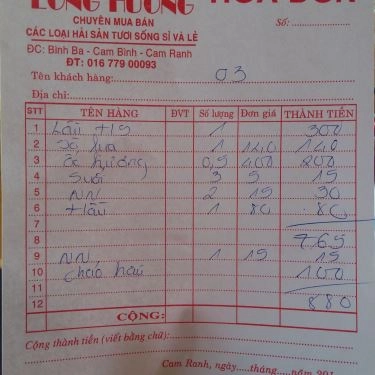 LONG HƯƠNG HÓA ĐƠN
CHUYÊN MUA BÁN Số:
CÁC LOẠI HẢI SẢN TƯƠI SỐNG SỈ VÀ LẺ
ĐC: Bình Ba - Cam Bình - Cam Ranh
ĐT: 016 779 00093
Tên khách hàng: 03
Địa chỉ:
STT TÊN HÀNG ĐVT Số lượng Đơn giá THÀNH TIỀN
1 Lẩu HS 1 300
2 Sò lụa 1 140 140
3 Ốc hương 0,5 400 200
4 Suối 3 5 15
5 NN 2 15 30
6 Hàu 1 80 80
7
8 765
9 NN 1 15 15
10 Cháo hàu 100
11
12 880
CỘNG:
Cộng thành tiền (viết bằng chữ):
Cam Ranh, ngày.....tháng.....năm 201